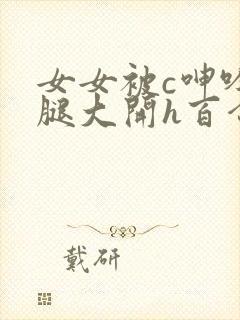 女女被c呻吟
腿大開h百合
戴研